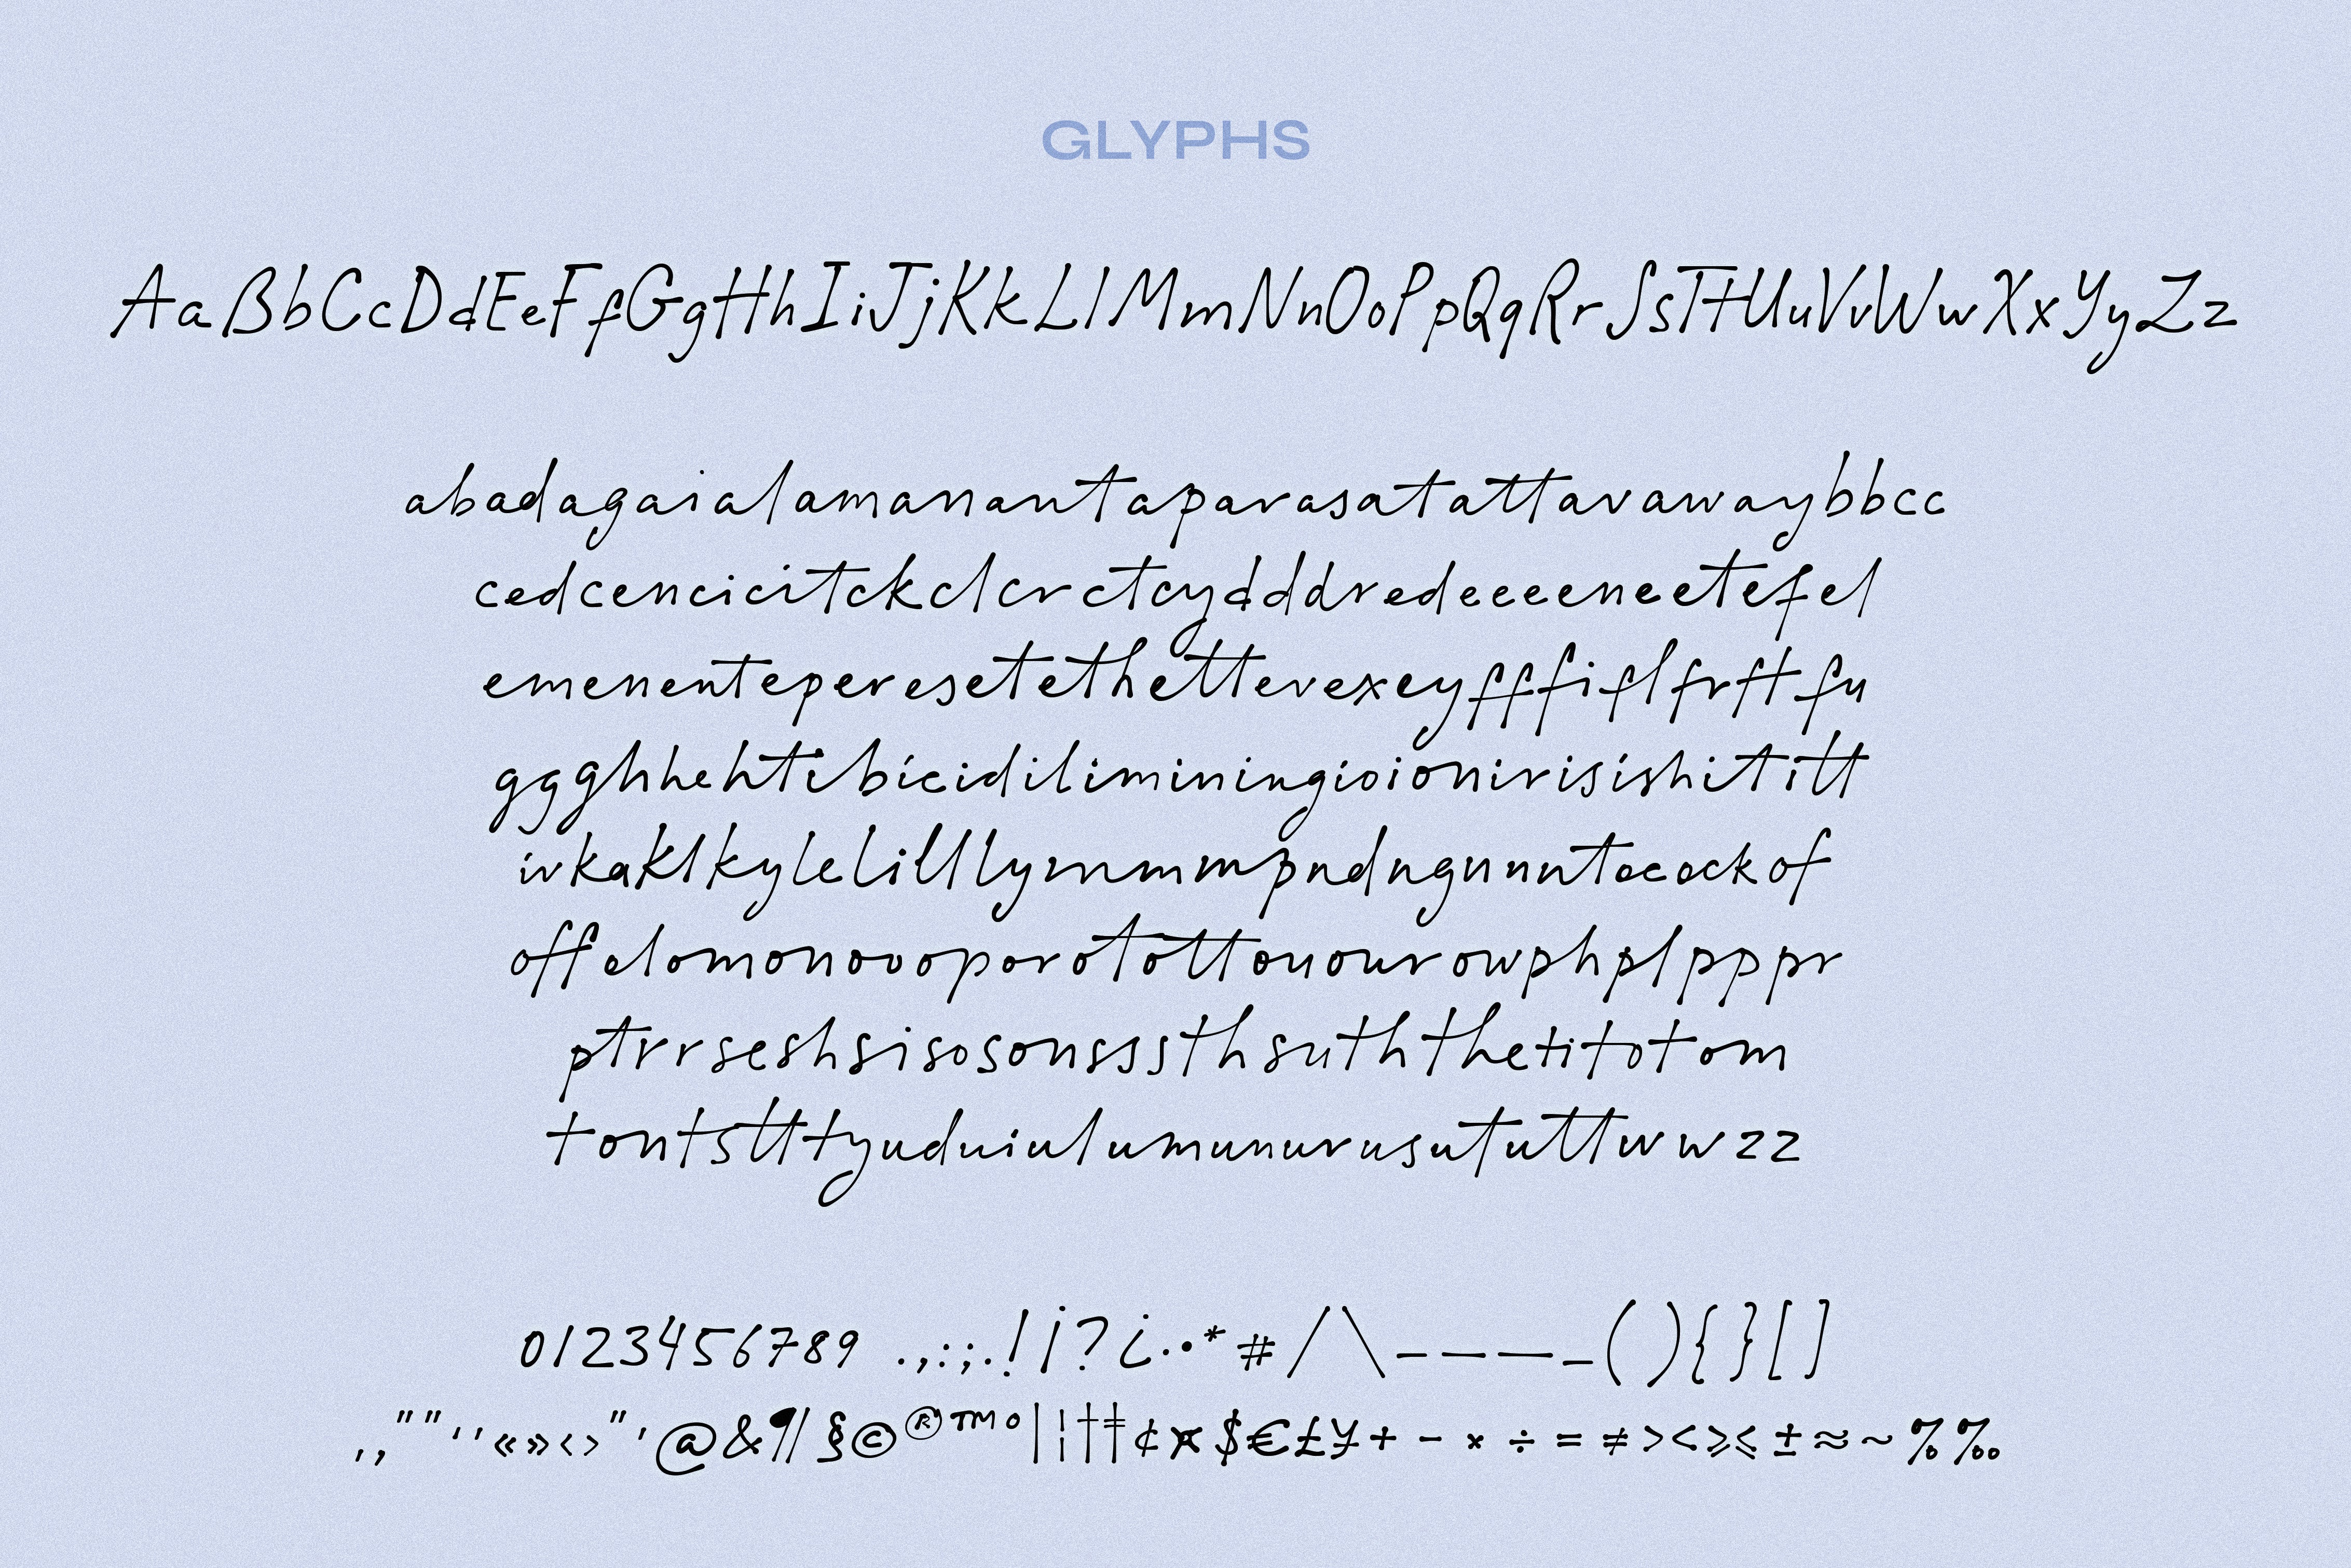 GLYPHS
AaBbCcDdEeFfGgHhIiJjKkLlMmNnOoPpQqRrSsTtUuVvWwXxYyZz
abadagaialamanantaparasatattavawaybbcc
cedcencicitckclcrctcydddredeeeeneetefel
emenenteperesetethettevexeyfffiflfrftfu
gggghhehtibicidiliminingioionirisishititt
ivkaklkylelilllymmmmpndngnnntocockof
offolomonoooporotottouourowphplppppr
ptrrseshsisosonsssthsuththetitotom
tontstttyuduiulumunurusututtwwzz
0123456789 .,:;.!¡?¿·•*#/\–———_(){}[]
‚„“”‘’«»‹›"'@&¶§©®™°|¦†‡¢¤$€£¥+−×÷=≠><≥≤±≈~%‰